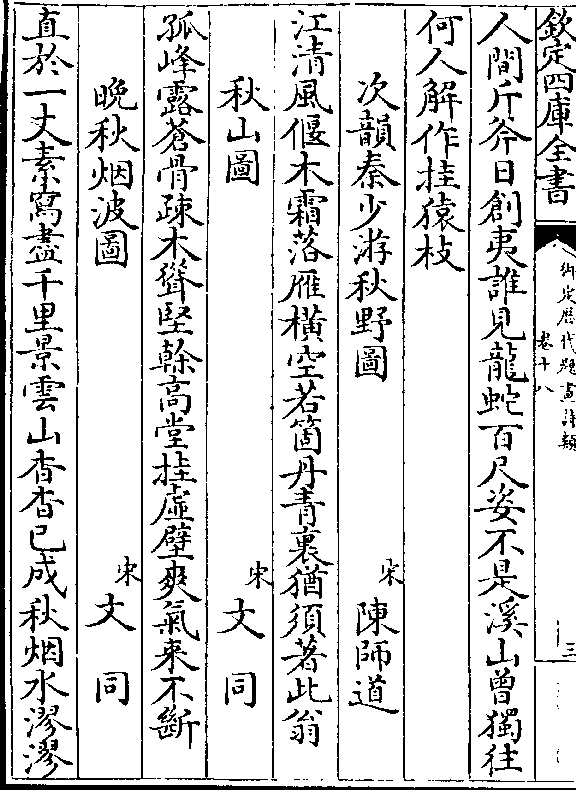 欽定四庫全書
御定歷代題畫詩類
卷十八
三
人間斤斧日創夷誰見龍蛇百尺姿不是溪山曾獨往
何人解作挂猿枝
次韻秦少游秋野圖
宋
陳師道
江清風偃木霜落雁橫空若箇丹青裏猶須著此翁
秋山圖
宋
文同
孤峰露蒼骨疎木聳堅榦高堂挂虛壁爽氣來不斷
晩秋烟波圖
宋
文同
直於一丈素寫盡千里景雲山杳杳已成秋烟水漻漻